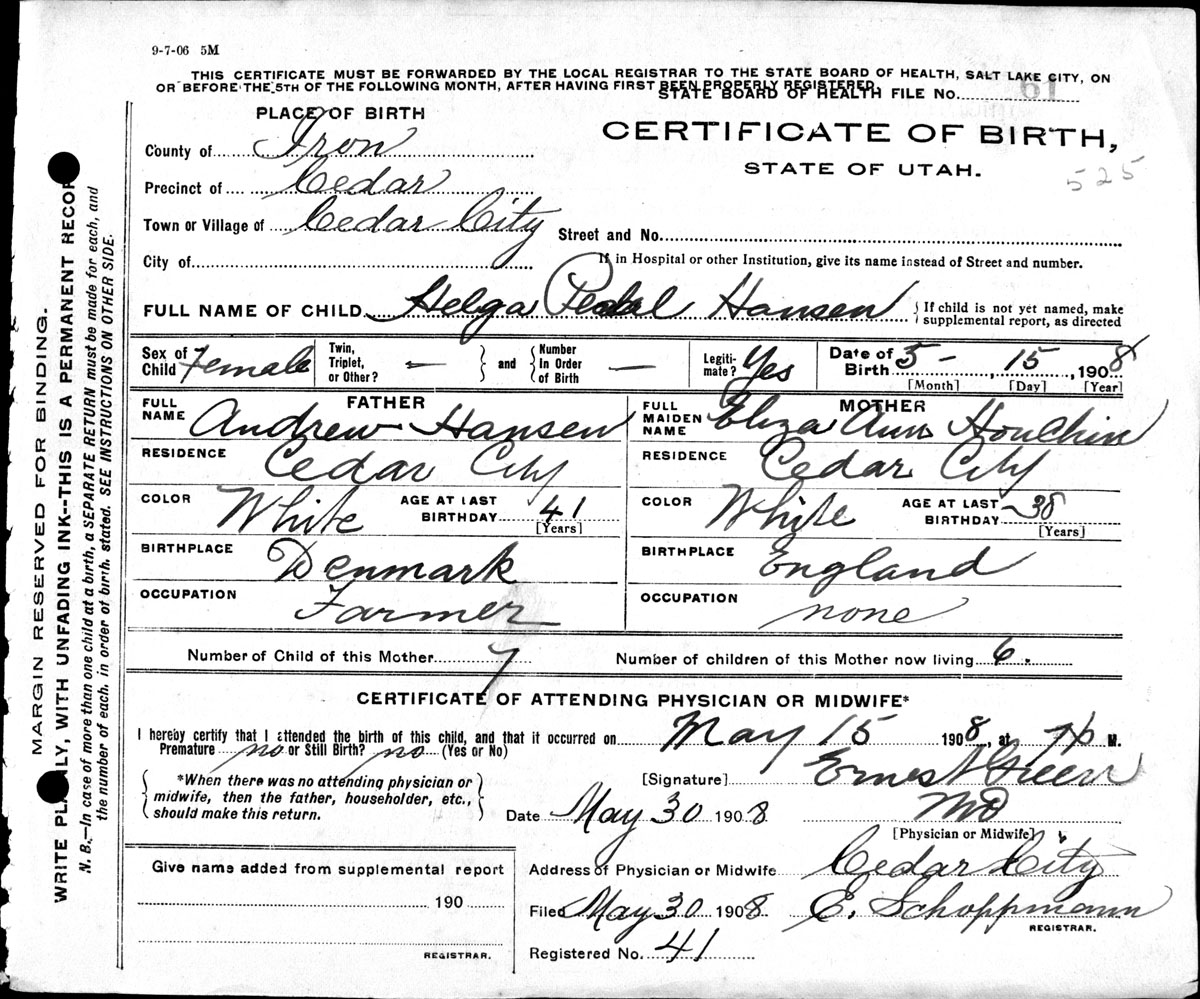 9-7-06 5M
THIS CERTIFICATE MUST BE FORWARDED BY THE LOCAL REGISTRAR TO THE STATE BOARD OF HEALTH, SALT LAKE CITY, ON
OR BEFORE THE 5TH OF THE FOLLOWING MONTH, AFTER HAVING FIRST BEEN PROPERLY REGISTERED.
STATE BOARD OF HEALTH FILE NO. 61
PLACE OF BIRTH
CERTIFICATE OF BIRTH,
STATE OF UTAH.
525
County of Iron
Precinct of Cedar
Town or Village of Cedar City
Street and No.
City of
If in Hospital or other Institution, give its name instead of Street and number.
FULL NAME OF CHILD Helga Hansen { If child is not yet named, make supplemental report, as directed
Sex of Child Female
Twin, Triplet, or Other? — } and { Number In Order of Birth —
Legitimate? Yes
Date of Birth 5 - , 15 , 1908
[Month] [Day] [Year]
FATHER
FULL NAME Andrew Hansen
RESIDENCE Cedar City
COLOR White AGE AT LAST BIRTHDAY 41 [Years]
BIRTHPLACE Denmark
OCCUPATION Farmer
MOTHER
FULL MAIDEN NAME Eliza Ann Houchin
RESIDENCE Cedar City
COLOR White AGE AT LAST BIRTHDAY 38 [Years]
BIRTHPLACE England
OCCUPATION none
Number of Child of this Mother 7 Number of children of this Mother now living 6.
CERTIFICATE OF ATTENDING PHYSICIAN OR MIDWIFE*
I hereby certify that I attended the birth of this child, and that it occurred on May 15 1908, at M.
Premature no or Still Birth? no (Yes or No)
{ *When there was no attending physician or midwife, then the father, householder, etc., should make this return. }
[Signature] Ernest Green
MD
Date May 30 1908
[Physician or Midwife]
Address of Physician or Midwife Cedar City
Filed May 30 1908 E. Schoppmann
REGISTRAR.
Registered No. 41
Give name added from supplemental report
190
REGISTRAR.
MARGIN RESERVED FOR BINDING.
WRITE PLAINLY, WITH UNFADING INK--THIS IS A PERMANENT RECORD
N. B.—In case of more than one child at a birth, a SEPARATE RETURN must be made for each, and
the number of each, in order of birth, stated. SEE INSTRUCTIONS ON OTHER SIDE.